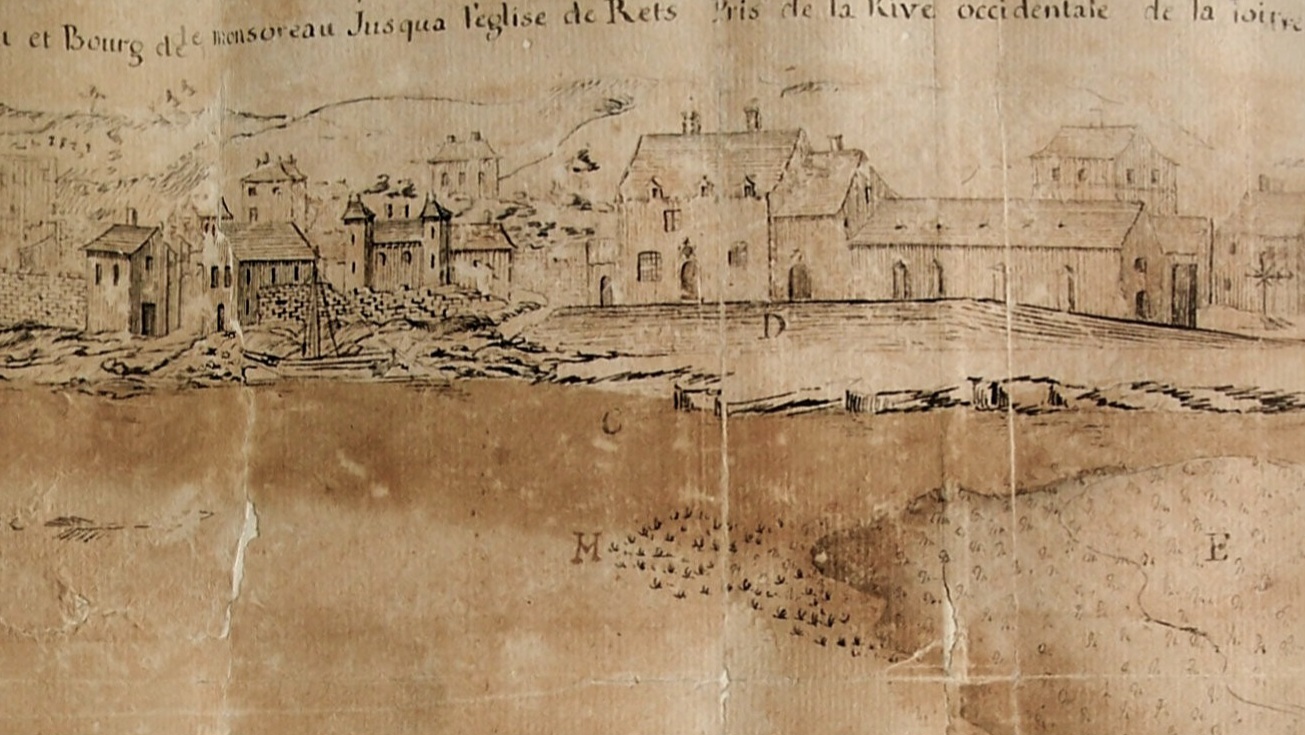 et Bourg de le monsoreau Jusqua l'eglise de Rets Pris de la Rive occidentale de la
D
C
M
E